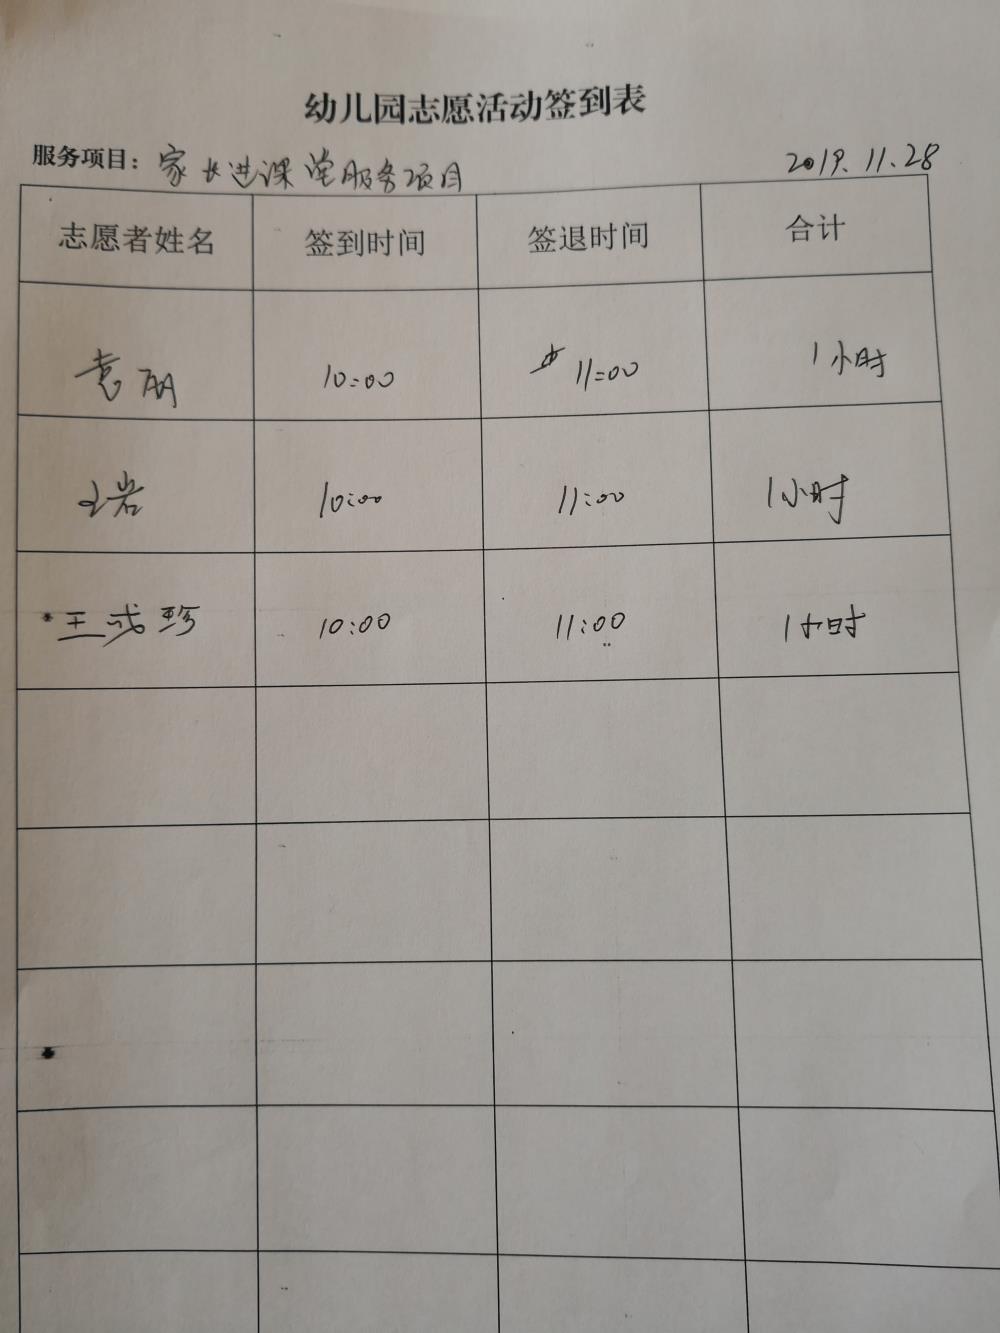 幼儿园志愿活动签到表
服务项目：家长进课堂服务项目 2019.11.28
志愿者姓名 签到时间 签退时间 合计
袁丽 10:00 11:00 1小时
王岩 10:00 11:00 1小时
王 珍 10:00 11:00 1小时